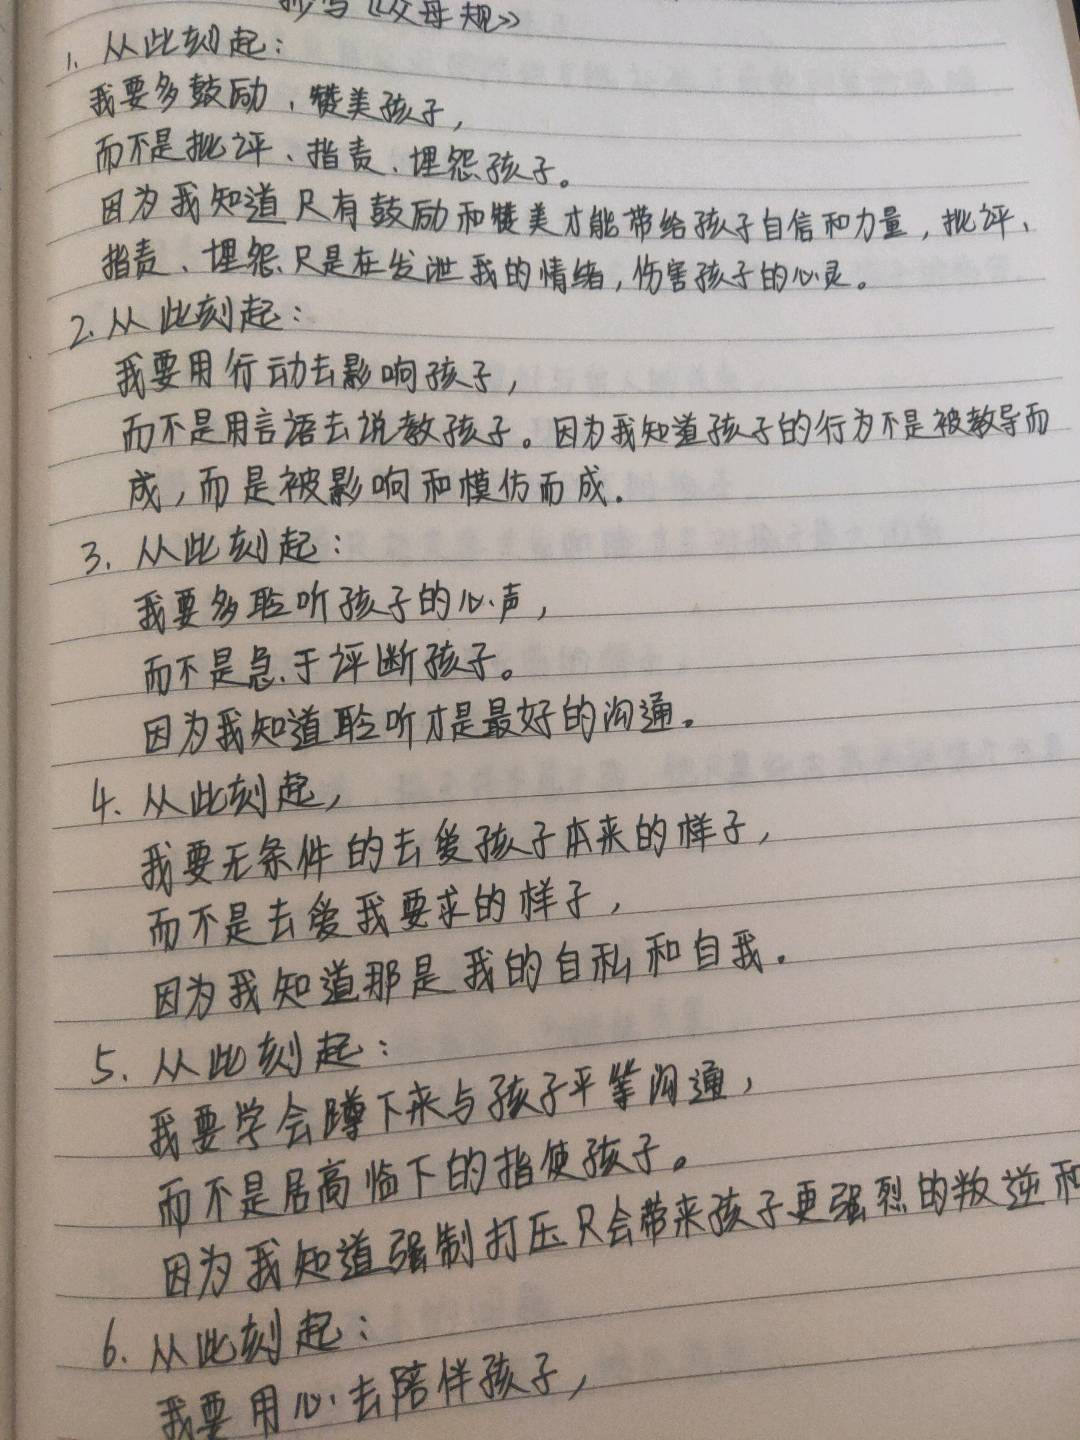 抄写《父母规》
1. 从此刻起：
我要多鼓励、赞美孩子，
而不是批评、指责、埋怨孩子。
因为我知道只有鼓励和赞美才能带给孩子自信和力量，批评、
指责、埋怨只是在发泄我的情绪，伤害孩子的心灵。
2. 从此刻起：
我要用行动去影响孩子，
而不是用言语去说教孩子。因为我知道孩子的行为不是被教导而
成，而是被影响和模仿而成．
3. 从此刻起：
我要多聆听孩子的心声，
而不是急于评断孩子。
因为我知道聆听才是最好的沟通。
4. 从此刻起，
我要无条件的去爱孩子本来的样子，
而不是去爱我要求的样子，
因为我知道那是我的自私和自我．
5. 从此刻起：
我要学会蹲下来与孩子平等沟通，
而不是居高临下的指使孩子。
因为我知道强制打压只会带来孩子更强烈的叛逆和
6. 从此刻起：
我要用心去陪伴孩子，